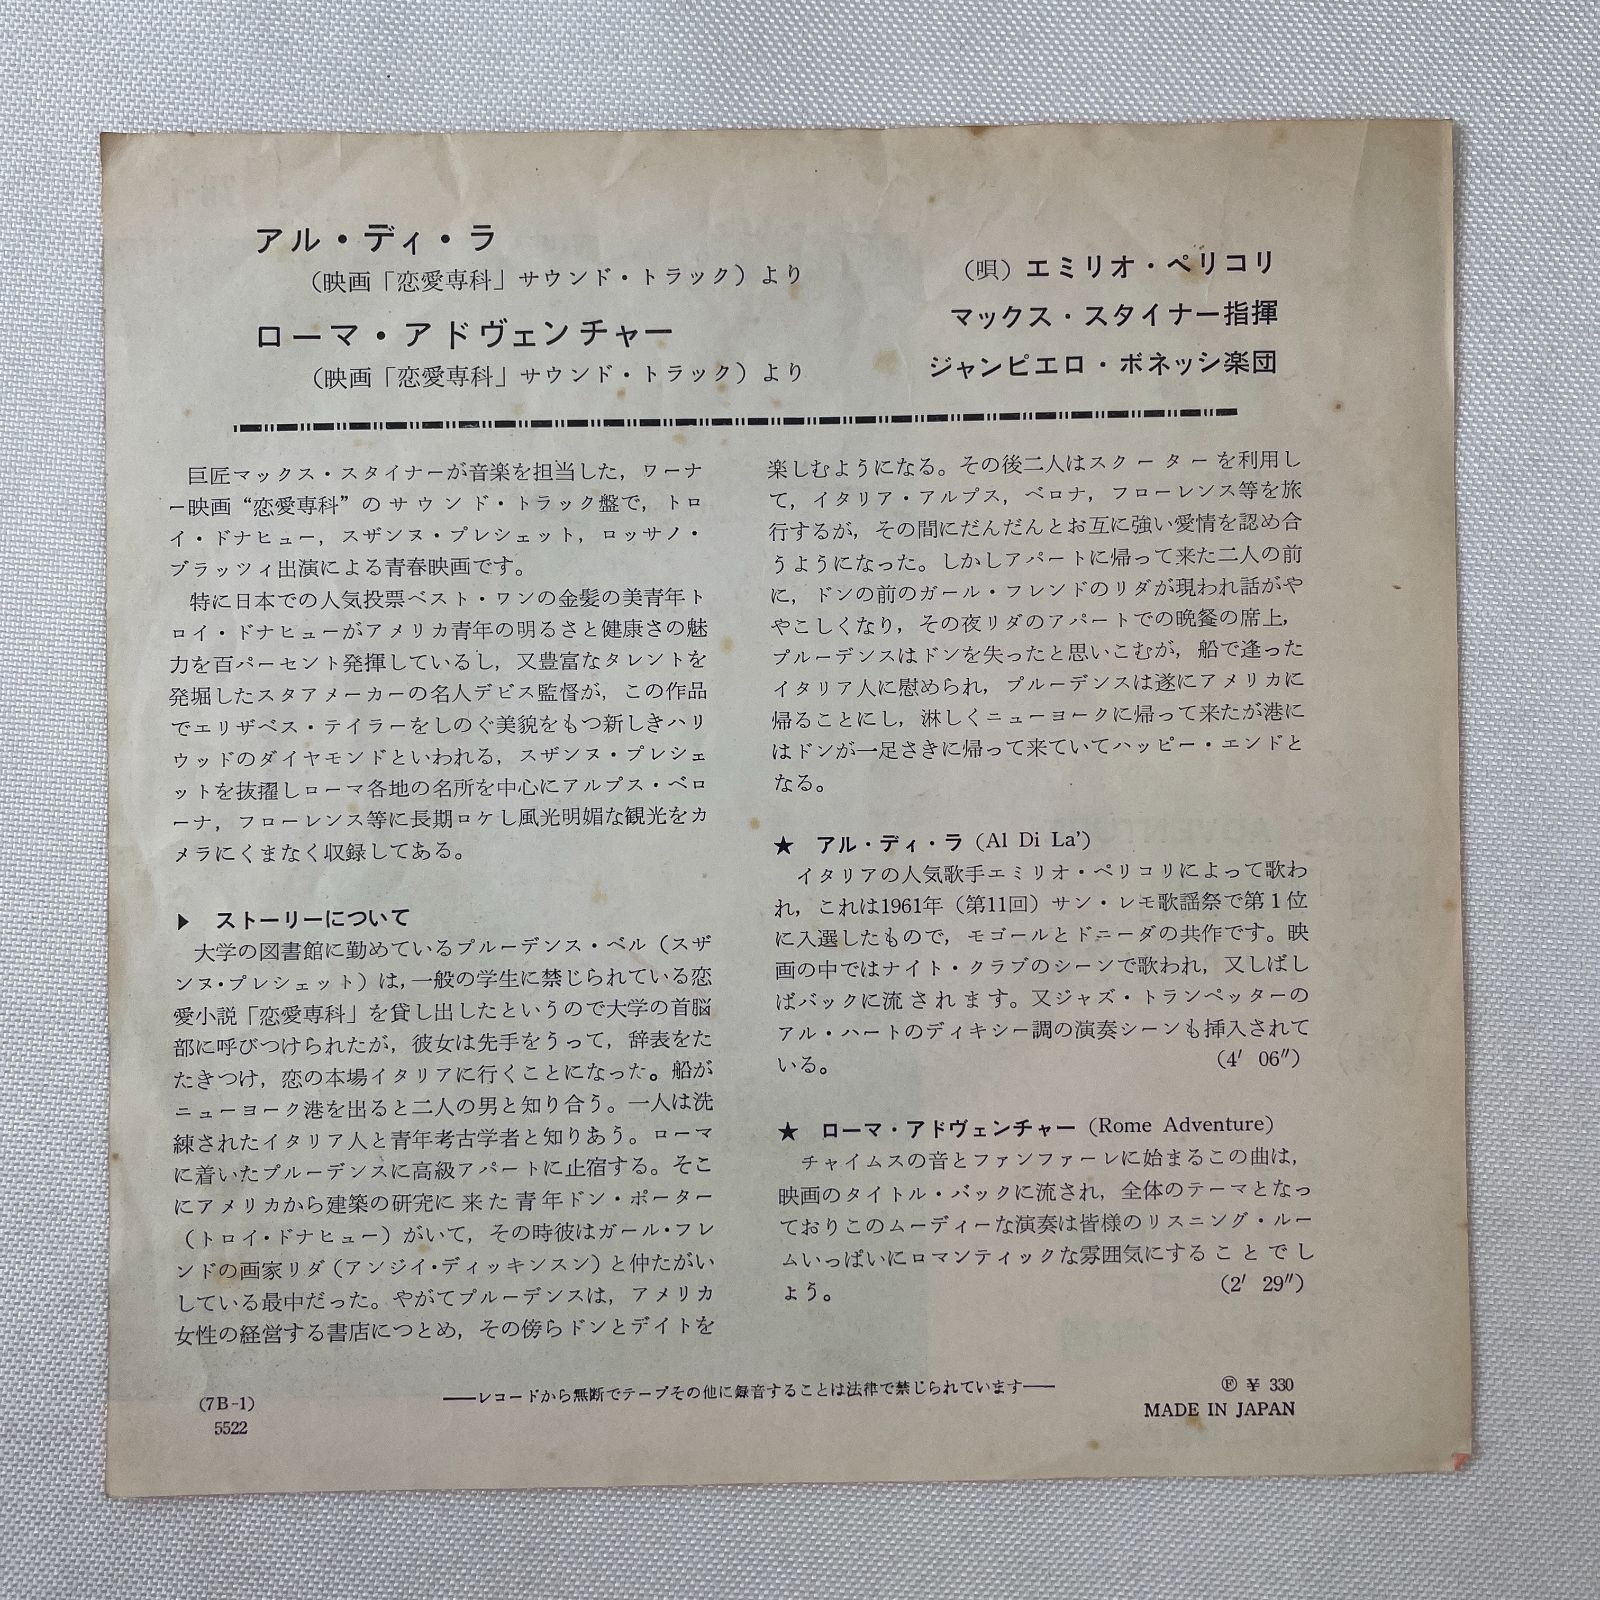 アル・ディ・ラ
（映画「恋愛専科」サウンド・トラック）より
ローマ・アドヴェンチャー
（映画「恋愛専科」サウンド・トラック）より
（唄）エミリオ・ペリコリ
マックス・スタイナー指揮
ジャンピエロ・ボネッシ楽団
巨匠マックス・スタイナーが音楽を担当した，ワーナ
ー映画“恋愛専科”のサウンド・トラック盤で，トロ
イ・ドナヒュー，スザンヌ・プレシェット，ロッサノ・
ブラッツィ出演による青春映画です。
特に日本での人気投票ベスト・ワンの金髪の美青年ト
ロイ・ドナヒューがアメリカ青年の明るさと健康さの魅
力を百パーセント発揮しているし，又豊富なタレントを
発堀したスタアメーカーの名人デビス監督が，この作品
でエリザベス・テイラーをしのぐ美貌をもつ新しきハリ
ウッドのダイヤモンドといわれる，スザンヌ・プレシェ
ットを抜擢しローマ各地の名所を中心にアルプス・ベロ
ーナ，フローレンス等に長期ロケし風光明媚な観光をカ
メラにくまなく収録してある。
▶ ストーリーについて
大学の図書館に勤めているプルーデンス・ベル（スザ
ンヌ・プレシェット）は，一般の学生に禁じられている恋
愛小説「恋愛専科」を貸し出したというので大学の首脳
部に呼びつけられたが，彼女は先手をうって，辞表をた
たきつけ，恋の本場イタリアに行くことになった。船が
ニューヨーク港を出ると二人の男と知り合う。一人は洗
練されたイタリア人と青年考古学者と知りあう。ローマ
に着いたプルーデンスに高級アパートに止宿する。そこ
にアメリカから建築の研究に来た青年ドン・ポーター
（トロイ・ドナヒュー）がいて，その時彼はガール・フレ
ンドの画家リダ（アンジイ・ディッキンスン）と仲たがい
している最中だった。やがてプルーデンスは，アメリカ
女性の経営する書店につとめ，その傍らドンとデイトを
楽しむようになる。その後二人はスクーターを利用し
て，イタリア・アルプス，ベロナ，フローレンス等を旅
行するが，その間にだんだんとお互に強い愛情を認め合
うようになった。しかしアパートに帰って来た二人の前
に，ドンの前のガール・フレンドのリダが現われ話がや
やこしくなり，その夜リダのアパートでの晩餐の席上，
プルーデンスはドンを失ったと思いこむが，船で逢った
イタリア人に慰められ，プルーデンスは遂にアメリカに
帰ることにし，淋しくニューヨークに帰って来たが港に
はドンが一足さきに帰って来ていてハッピー・エンドと
なる。
★ アル・ディ・ラ（Al Di La’）
イタリアの人気歌手エミリオ・ペリコリによって歌わ
れ，これは1961年（第11回）サン・レモ歌謡祭で第１位
に入選したもので，モゴールとドニーダの共作です。映
画の中ではナイト・クラブのシーンで歌われ，又しばし
ばバックに流されます。又ジャズ・トランペッターの
アル・ハートのディキシー調の演奏シーンも挿入されて
いる。 （4′ 06″）
★ ローマ・アドヴェンチャー（Rome Adventure）
チャイムスの音とファンファーレに始まるこの曲は，
映画のタイトル・バックに流され，全体のテーマとなっ
ておりこのムーディーな演奏は皆様のリスニング・ルー
ムいっぱいにロマンティックな雰囲気にすることでし
ょう。 （2′ 29″）
(7B-1)
5522
──レコードから無断でテープその他に録音することは法律で禁じられています──
Ⓕ ¥ 330
MADE IN JAPAN